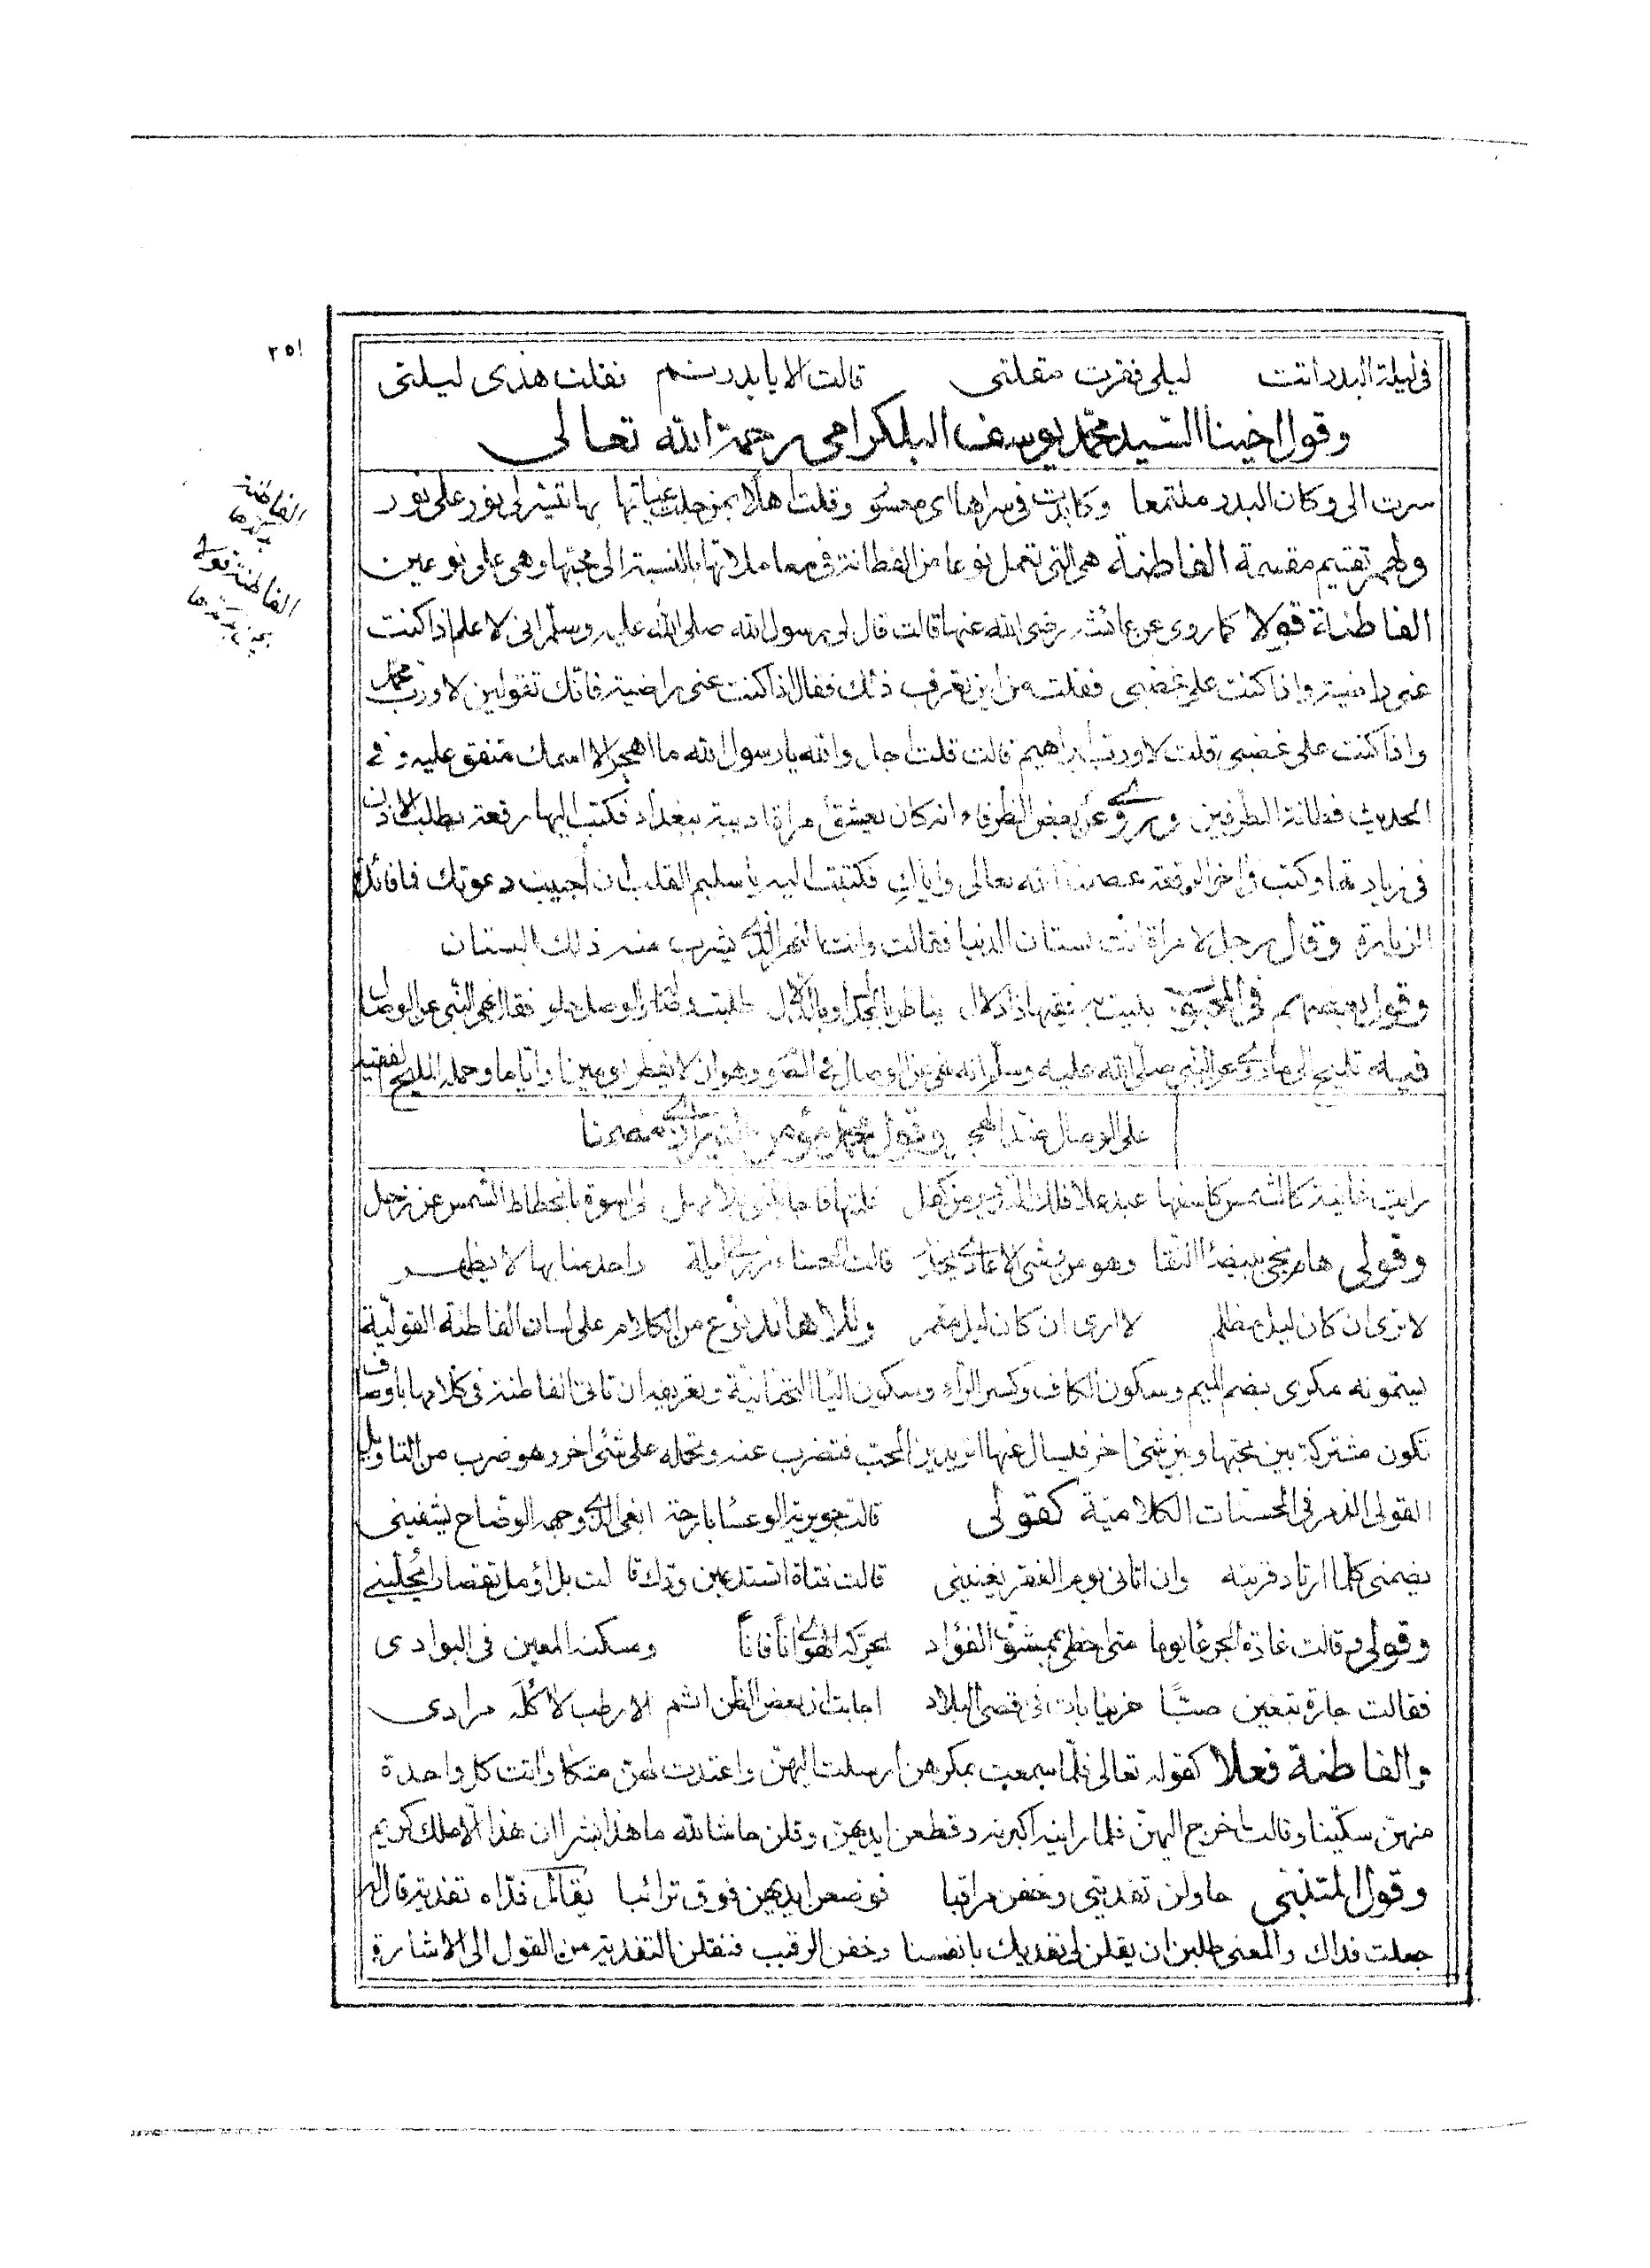 ٢٥١
في ليلة البدر اتت ليلى فقرت مقلتي قالت الا يا بدر نم فقلت هذى ليلتي
وقول اخينا السيد محمد يوسف البلكرامي رحمة الله تعالى
سرت الى وكان البدر ملتمعا وقلت اهلا بمن جلت بها تشير لى نور على نور
ولهم تقسيم مقسمة الفاطنة هى التي تعمل نوعا من الفطانة في معاملاتها بالنسبة الى محبها وهى على نوعين
الفاطنة قولا كما روى عن عائشة رضى الله عنها قالت قال لى رسول الله صلى الله عليه وسلم انى لاعلم اذا كنت
عنى راضية واذا كنت على غضبى فقلت من اين تعرف ذلك فقال اذا كنت عنى راضية فانك تقولين لا ورب محمد
واذا كنت على غضبى قلت لا ورب ابراهيم قالت قلت اجل والله يا رسول الله ما اهجر الا اسمك متفق عليه وفى
الحديث فطانة الطرفين وروى عن بعض الظرفاء انه كان يعشق امراة اديبة ببغداد فكتب اليها رقعة بطلب الاذن
في زيارتها وكتب في اخر الرقعة عصمنا الله تعالى واياك فكتبت اليه يا سليم القلب ان اجيبت دعوتك فما فائدة
الزيارة وقال رجل لامراة انت بستان الدنيا فقالت وانت النهر الذى يشرب منه ذلك البستان
وقول بعضهم في
فيه تلميح الى ما روى عن النبي صلى الله عليه وسلم انه نهى عن الوصال في الصوم وهو ان لا يفطر يومين او اياما وحمله المليح الفقيه
على الوصال ضد الهجر وقول محمد مؤمن الشيرازى مضمنا
رايت غانية كالشمس كاسفها لى اسوة بانحطاط الشمس عن زحل
وقولى قالت الحسناء زرنى ليلة واحد منا بها لا يظهر
لا ترى ان كان ليل مظلم لا ارى ان كان ليل مقمر وللاهاند نوع من الكلام على لسان الفاطنة القولية
يسمونه مكرى بضم الميم وسكون الكاف وكسر الراء وسكون الياء التحتانية وتعريفه ان تاتى الفاطنة في كلامها باوصاف
تكون مشتركة بين محبها وبين شئ اخر فليسال عنها اتريدين المحب فتضرب عنه وتحمله على شئ اخر وهو ضرب من التاويل
القولى الذى مر في المحسنات الكلامية كقولى قالت جويرية الوعساء بارحة ابغى الذى وجهه الوضاح يشفينى
يضمنى كلما ارتاد قربته وان اتانى يوم الفقر يغنينى قالت فتاة اتستدعين ودك قالت بل اؤمل تقصارا يحلينى
وقولى وقالت غادة الجرعاء يوما متى احظى بممشوق الفؤاد يحركه الهوى انا فانا ومسكنه المعين في البوادى
فقالت جارة تبغين صبا غريبا بات في اقصى البلاد اجابت ان بعض الظن اثم الا رطب لأكله مرادى
والفاطنة فعلا كقوله تعالى فلما سمعت بمكرهن ارسلت اليهن واعتدت لهن متكأ واتت كل واحدة
منهن سكينا وقالت اخرج اليهن فلما راينه اكبرنه وقطعن ايديهن وقلن حاش لله ما هذا بشرا ان هذا الا ملك كريم
وقول المتنبى حاولن تفديتى وخفن مراقبا فوضعن ايديهن فوق ترائبا يقال فداه تفدية قال له
جعلت فداك والمعنى طلبن ان يقلن لى نفديك بانفسنا وخفن الرقيب فنقلن التفدية من القول الى الاشارة
الفاطنة
الفاطنة قولا